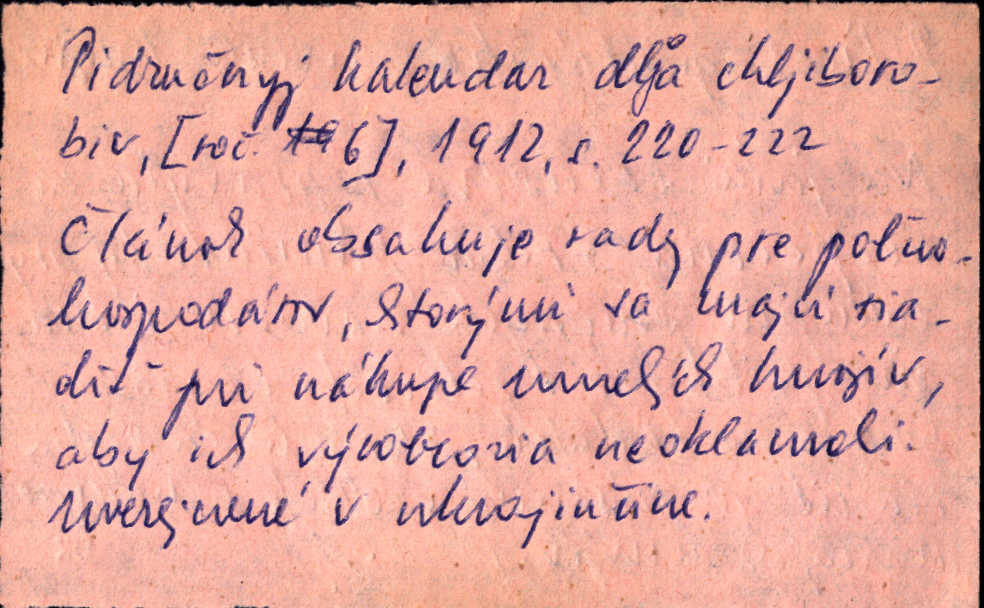 Pidručnyj kalendar dlja chljiboro-
biv, [roč. 6], 1912, s. 220-222
Článok obsahuje rady pre poľno-
hospodárov, ktorými sa majú ria-
diť pri nákupe umelých hnojív,
aby ich výrobcovia neoklamali.
Uverejnené v ukrajinčine.